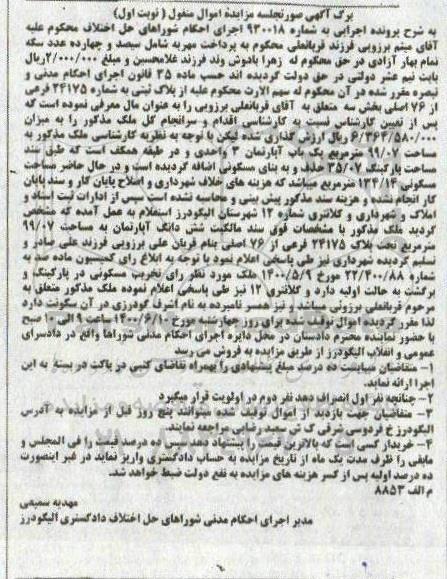 برگ آگهی صورتجلسه مزایده اموال منقول (نوبت اول)
به شرح پرونده اجرایی به شماره ۹۳۰۰۱۸ اجرای احکام شوراهای حل اختلاف محکوم علیه
آقای میثم برزویی فرزند قربانعلی محکوم به پرداخت مهریه شامل سیصد و چهارده عدد سکه
تمام بهار آزادی در حق محکوم له زهرا بادوش وند فرزند غلامحسین و مبلغ ۲/۰۰۰/۰۰۰ ریال
بابت نیم عشر دولتی در حق دولت گردیده اند حسب ماده ۳۵ قانون اجرای احکام مدنی و
تبصره مقرر شده در آن محکوم له سهم الارث محکوم علیه از پلاک ثبتی به شماره ۲۴۱۷۵ فرعی
از ۷۶ اصلی بخش سه متعلق به آقای قربانعلی برزویی را به عنوان مال معرفی نموده است که
پس از تعیین کارشناس نسبت به کارشناسی اقدام و سرانجام کل ملک مذکور را به میزان
۶/۳۶۴/۵۸۰/۰۰۰ ریال ارزش گذاری شده لیکن با توجه به نظریه کارشناسی ملک مذکور به
مساحت ۹۹/۰۷ مترمربع یک باب آپارتمان ۳ واحدی و در طبقه همکف است که طبق سند
مساحت پارکینگ ۳۵/۰۷ حذف و به بنای مسکونی اضافه گردیده است و در حال حاضر مساحت
مسکونی ۱۳۴/۱۴ مترمربع میباشد که هزینه های خلاف شهرداری و اصلاح پایان کار و سند پایان
کار انجام نشده و هزینه سند مذکور پیش بینی و محاسبه نشده است سپس از ادارات ثبت اسناد و
املاک و شهرداری و کلانتری شماره ۱۲ شهرستان الیگودرز استعلام به عمل آمده که مشخص
گردید ملک مذکور با مشخصات فوق سند مالکیت شش دانگ آپارتمان به مساحت ۹۹/۰۷
مترمربع تحت پلاک ۲۴۱۷۵ فرعی از ۷۶ اصلی بنام قربان علی برزویی فرزند علی صادر و
تسلیم گردیده شهرداری نیز طی پاسخی اعلام نمود با توجه به ابلاغ رای کمیسیون ماده صد به
شماره ۲۲/۴۰۰/۸۸ مورخ ۱۴۰۰/۵/۹ ملک مورد نظر رای تخریب مسکونی در پارکینگ و
برگشت به حالت اولیه دارد و کلانتری ۱۲ نیز طی پاسخی اعلام نموده ملک مذکور متعلق به
مرحوم قربانعلی برزویی میباشد و نیز همسر نامبرده به نام اشرف گودرزی در آن سکونت دارد
لذا مقرر گردیده اموال توقیف شده برای روز چهارشنبه مورخ ۱۴۰۰/۶/۱۰ ساعت ۹ الی ۱۰ صبح
با حضور نماینده محترم دادستان در محل دایره اجرای احکام مدنی شوراها واقع در دادسرای
عمومی و انقلاب الیگودرز از طریق مزایده به فروش می رسد
۱- متقاضیان میبایست ده درصد مبلغ پیشنهادی را بهمراه تقاضای کتبی در پاکت در بسته به این
اجرا ارائه نماید.
۲- چنانچه نفر اول انصراف دهد نفر دوم در اولویت قرار میگیرد
۳- متقاضیان جهت بازدید از اموال توقیف شده میتوانند پنج روز قبل از مزایده به آدرس
الیگودرز خ فردوسی شرقی ک ش سعید رضایی مراجعه نمایند.
۴- خریدار کسی است که بالاترین قیمت را پیشنهاد دهد سپس ده درصد قیمت را فی المجلس و
مابقی را ظرف مدت یک ماه از تاریخ مزایده به حساب دادگستری واریز نماید در غیر اینصورت
ده درصد اولیه پس از کسر هزینه های مزایده به نفع دولت ضبط خواهد شد.
م الف ۸۸۵۳
مهدیه سمیعی
مدیر اجرای احکام مدنی شوراهای حل اختلاف دادگستری الیگودرز